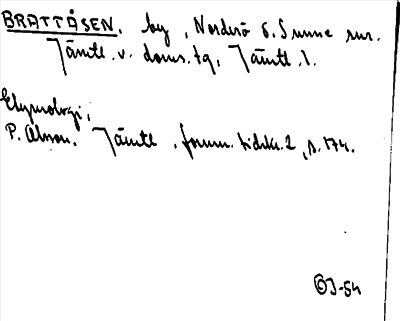 BRATTÅSEN, by, Norderö s. Sunne sn.
Jämtl. v. doms. tg, Jämtl. l.
Etymologi;
P. Olsson. Jämtl. fornm. tidskr. 2, s. 174.
ÖJ-54